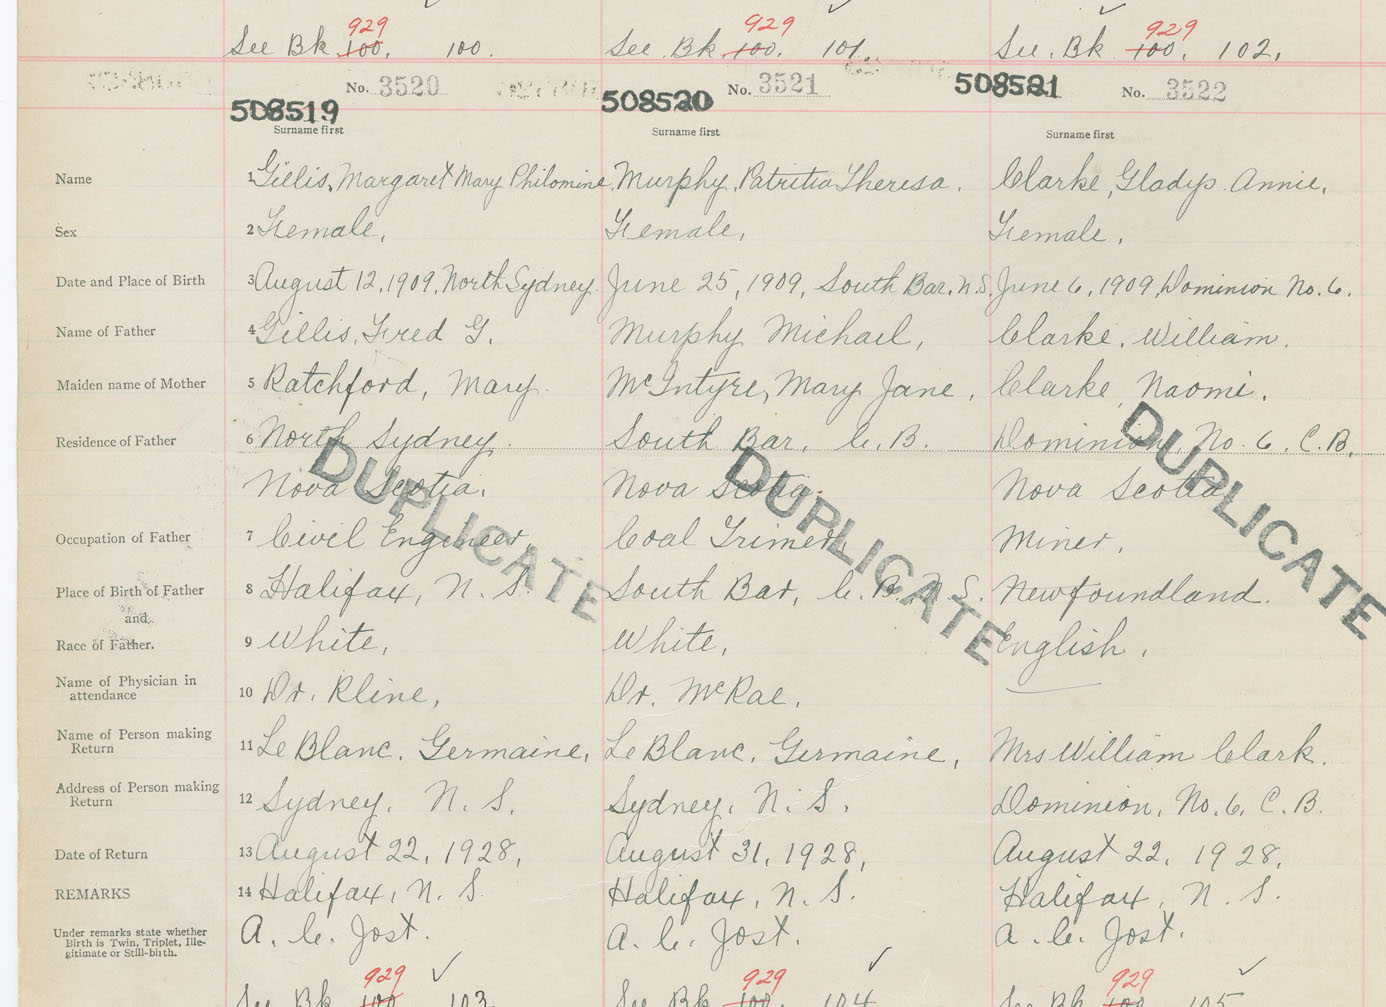 See Bk 100, 929 100.
See Bk 100, 929 101.
See Bk 100, 929 102,
No. 3520
No. 3521
No. 3522
508519
508520
508521
Surname first
Surname first
Surname first
Name 1 Gillis, Margaret Mary Philomine Murphy, Patritia Theresa. Clarke, Gladys Annie,
Sex 2 Female, Female, Female,
Date and Place of Birth 3 August 12, 1909, North Sydney. June 25, 1909, South Bar, N.S. June 6, 1909, Dominion No. 6.
Name of Father 4 Gillis, Fred G. Murphy Michael, Clarke, William.
Maiden name of Mother 5 Ratchford, Mary. McIntyre, Mary Jane, Clarke, Naomi.
Residence of Father 6 North Sydney. South Bar, C.B. Dominion, No. 6, C.B.
Nova Scotia. Nova Scotia. Nova Scotia
DUPLICATE
DUPLICATE
DUPLICATE
Occupation of Father 7 Civil Engineer, Coal Trimer, Miner,
Place of Birth of Father 8 Halifax, N. S. South Bar, C. B. N. S. Newfoundland.
and
Race of Father. 9 White, White, English,
Name of Physician in
attendance 10 Dr. Kline, Dr. McRae,
Name of Person making
Return 11 Le Blanc, Germaine, Le Blanc, Germaine, Mrs William Clark.
Address of Person making
Return 12 Sydney, N. S. Sydney, N. S. Dominion, No. 6, C. B.
Date of Return 13 August 22, 1928, August 31, 1928, August 22, 1928,
REMARKS 14 Halifax, N. S. Halifax, N. S. Halifax, N. S.
Under remarks state whether
Birth is Twin, Triplet, Ille-
gitimate or Still-birth.
A. C. Jost. A. C. Jost. A. C. Jost.
See Bk 100 929 103
See Bk 100 929 104
See Bk 100 929 105